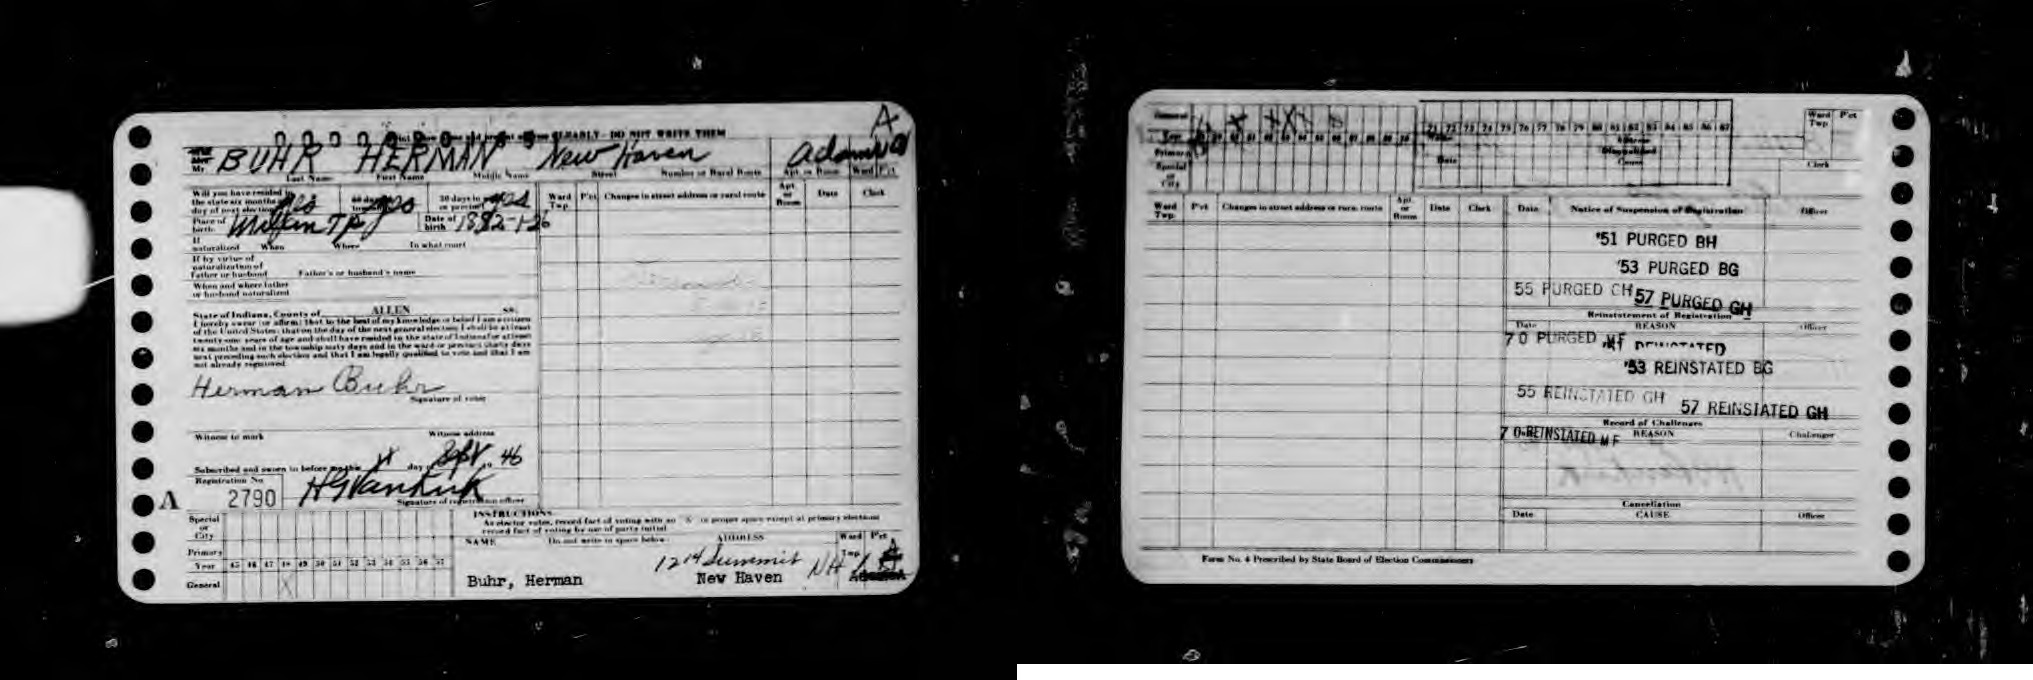 A
CLEARLY - DO NOT WRITE THEM
Mr BUHR HERMAN New Haven Adams A
Last Name First Name Middle Name Street Number or Rural Route Apt. or Room Ward Pct
Will you have resided in
the state six months yes 60 days yes 30 days in precinct yes
day of next election
Place of birth Tp Date of birth 1882-1-26
If naturalized When Where In what court
If by virtue of
naturalization of
Father or husband Father's or husband's name
When and where father
or husband naturalized
Ward Twp. P'ct Changes in street address or rural route Apt. or Room Date Clerk
State of Indiana, County of ALLEN SS.
I hereby swear (or affirm) that to the best of my knowledge or belief I am a citizen
of the United States; that on the day of the next general election I shall be at least
twenty-one years of age and shall have resided in the state of Indiana for at least
six months and in the township sixty days and in the ward or precinct thirty days
next preceding such election and that I am legally qualified to vote and that I am
not already registered
Herman Buhr
Signature of voter
Witness to mark Witness address
Subscribed and sworn to before me this day of Sept 19 46
Registration No
A 2790
Signature of registration officer
INSTRUCTIONS
As elector votes, record fact of voting with an "X" in proper space except at primary elections
record fact of voting by use of party initial
Special or City
Primary
Year 45 46 47 48 49 50 51 52 53 54 55 56 57
General X
NAME Do not write in space below ADDRESS Ward Twp. P'ct
1214 Summit NH A
Buhr, Herman New Haven
General
Year
Primary
Special or City
71 72 73 74 75 76 77 78 79 80 81 82 83 84 85 86 87
Date Disqualified Cause
Ward Twp P'ct
Clerk
Ward Twp. P'ct Changes in street address or rural route Apt. or Room Date Clerk
Date Notice of Suspension of Registration Officer
'51 PURGED BH
'53 PURGED BG
55 PURGED CH 57 PURGED GH
Reinstatement of Registration
Date REASON Officer
70 PURGED MF REINSTATED
'53 REINSTATED BG
55 REINSTATED GH
57 REINSTATED GH
Record of Challenges
70 REINSTATED MF REASON Challenger
Cancellation
Date CAUSE Officer
Form No. 4 Prescribed by State Board of Election Commissioners